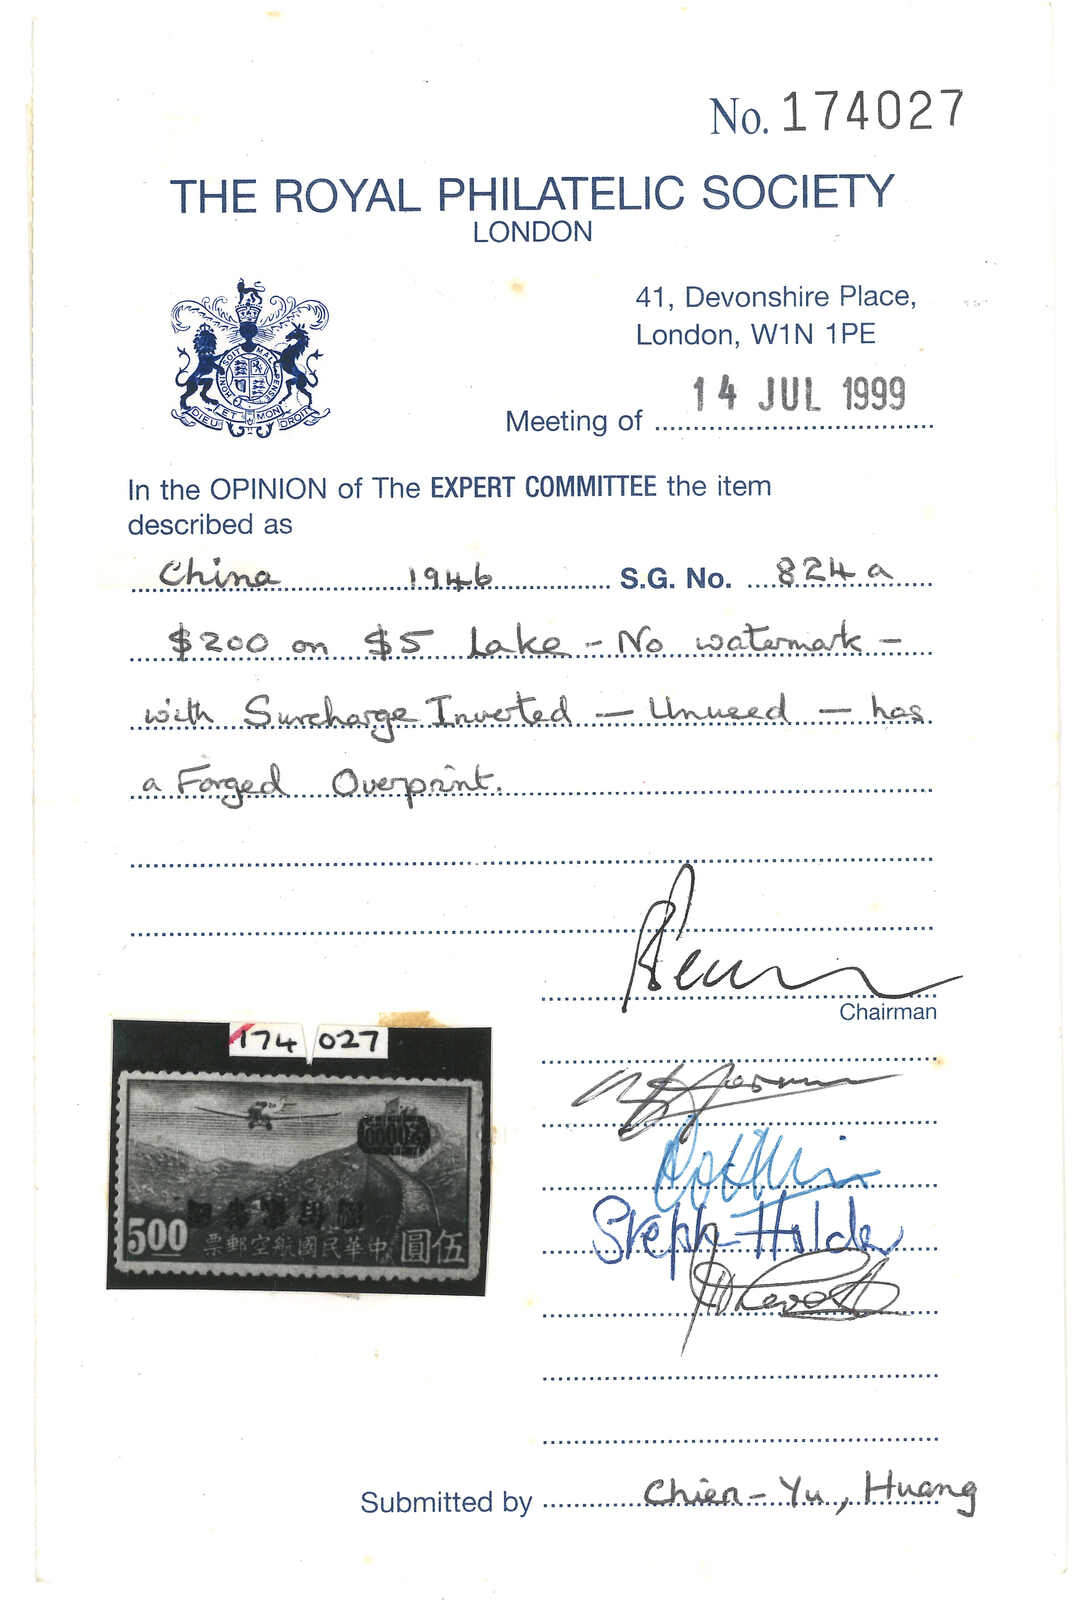 No. 174027
THE ROYAL PHILATELIC SOCIETY
LONDON
41, Devonshire Place,
London, W1N 1PE
HONI SOIT MAL PENSE
DIEU ET MON DROIT
Meeting of 14 JUL 1999
In the OPINION of The EXPERT COMMITTEE the item
described as
China 1946 S.G. No. 824a
$200 on $5 Lake - No watermark -
with Surcharge Inverted - Unused - has
a Forged Overprint.
Chairman
174 027
Steph Holder
5.00 票郵空航國民華中 圓伍
Submitted by Chien-Yu, Huang